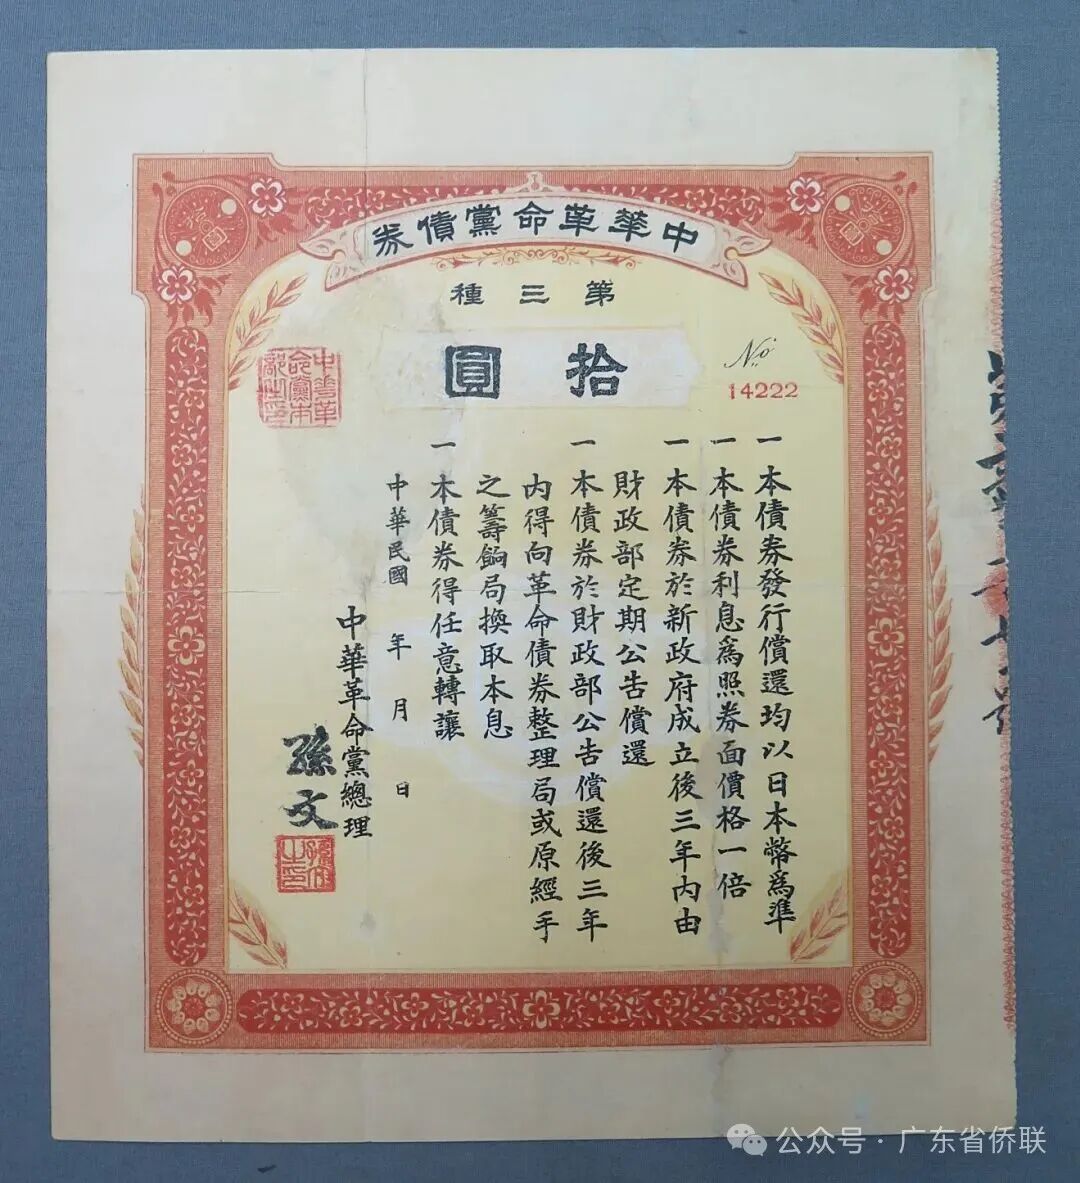 中華革命黨債券
第三種
拾圓
No
14222
中華革命黨本部之印
一本債券發行償還均以日本幣為準
一本債券利息為照券面價格一倍
一本債券於新政府成立後三年內由
財政部定期公告償還
一本債券於財政部公告償還後三年
內得向革命債券整理局或原經手
之籌餉局換取本息
一本債券得任意轉讓
中華民國 年 月 日
中華革命黨總理
孫文
公众号·广东省侨联